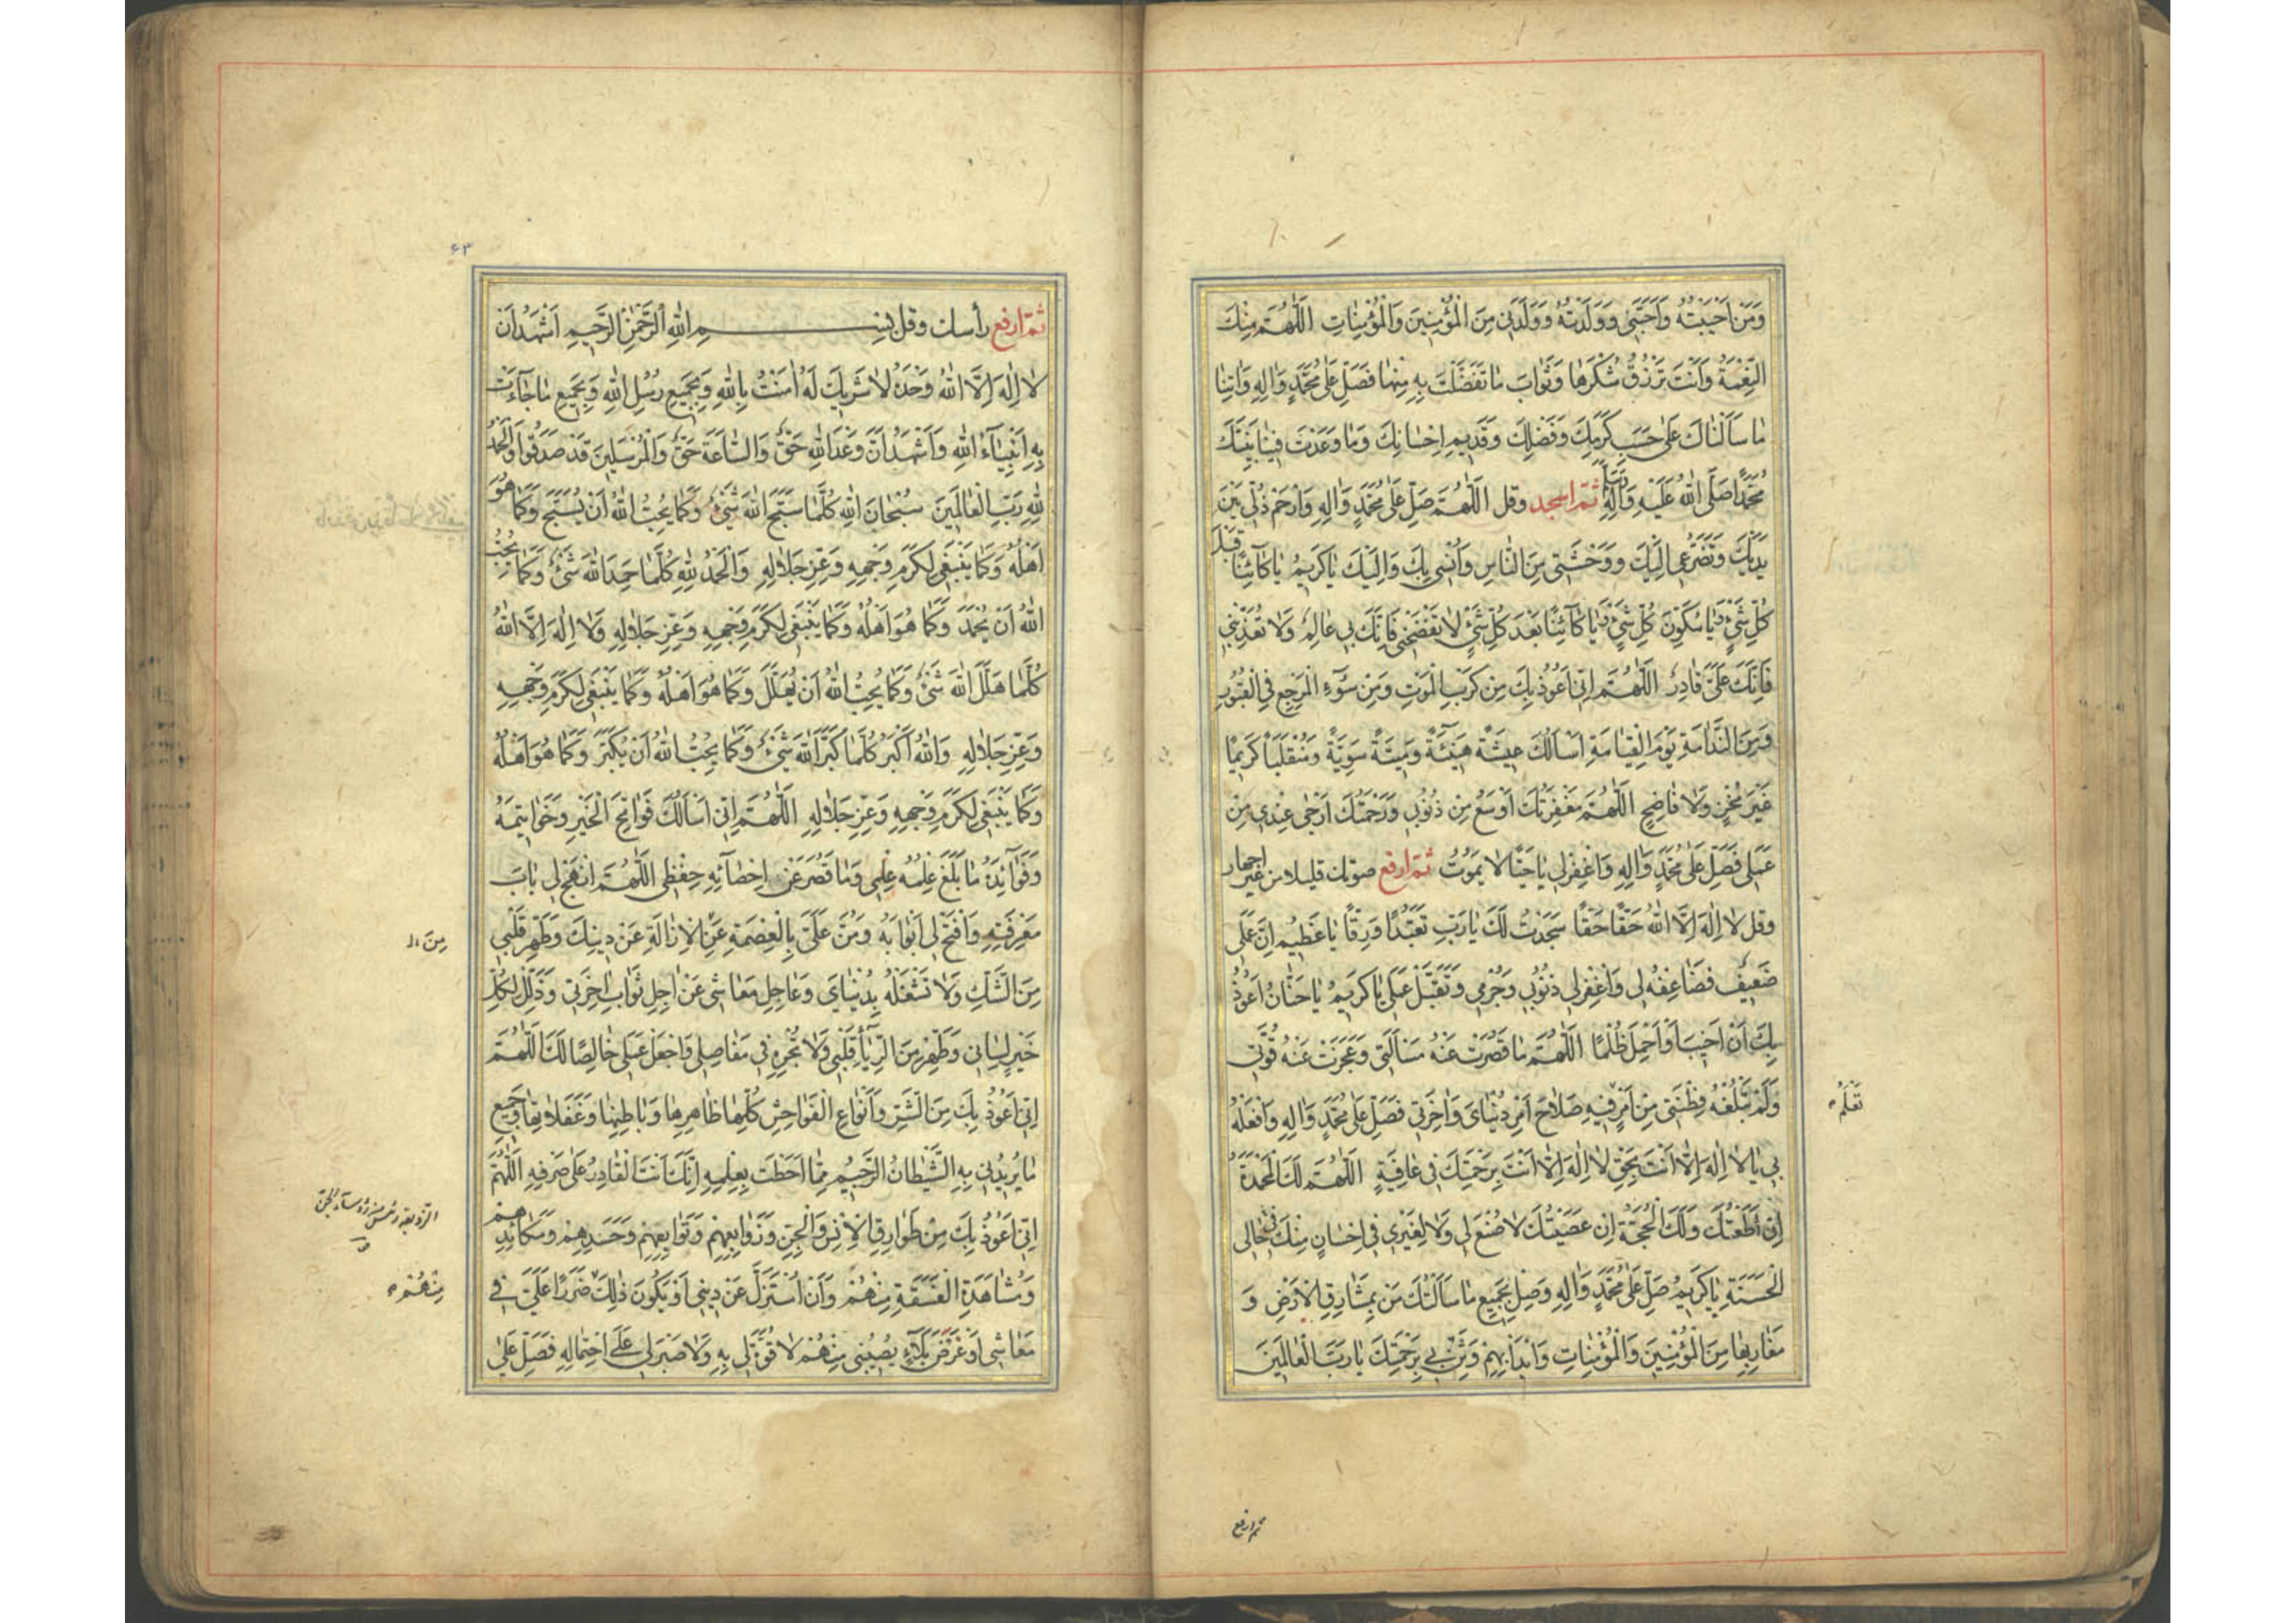 وَمَنْ اَحْبَبْتُهُ وَاَحَبَّنِي وَوَلَدْتُهُ وَوَلَدَنِي مِنَ الْمُؤْمِنِينَ وَالْمُؤْمِنَاتِ اَللّٰهُمَّ مِنْكَ
النِّعْمَةُ وَاَنْتَ تَرْزُقُ شُكْرَهَا وَثَوَابَ مَا تَفَضَّلْتَ بِهِ مِنْهَا فَصَلِّ عَلَى مُحَمَّدٍ وَاٰلِهِ وَاٰتِنَا
مَا سَاَلْنَاكَ عَلَى حَسَبِ كَرَمِكَ وَفَضْلِكَ وَقَدِيمِ اِحْسَانِكَ وَمَا وَعَدْتَ فِينَا نَبِيَّكَ
مُحَمَّدًا صَلَّى اللّٰهُ عَلَيْهِ وَاٰلِهِ ثم اسجد وقل اَللّٰهُمَّ صَلِّ عَلَى مُحَمَّدٍ وَاٰلِهِ وَارْحَمْ ذُلِّي بَيْنَ
يَدَيْكَ وَتَضَرُّعِي اِلَيْكَ وَوَحْشَتِي مِنَ النَّاسِ وَاُنْسِي بِكَ وَاِلَيْكَ يَا كَرِيمُ يَا كَائِنًا قَبْلَ
كُلِّ شَيْءٍ وَيَا مُكَوِّنَ كُلِّ شَيْءٍ وَيَا كَائِنًا بَعْدَ كُلِّ شَيْءٍ لَا تَفْضَحْنِي فَاِنَّكَ بِي عَالِمٌ وَلَا تُعَذِّبْنِي
فَاِنَّكَ عَلَيَّ قَادِرٌ اَللّٰهُمَّ اِنِّي اَعُوذُ بِكَ مِنْ كَرْبِ الْمَوْتِ وَمِنْ سُوءِ الْمَرْجِعِ فِي الْقُبُورِ
وَمِنَ النَّدَامَةِ يَوْمَ الْقِيَامَةِ اَسْاَلُكَ عِيشَةً هَنِيئَةً وَمِيتَةً سَوِيَّةً وَمُنْقَلَبًا كَرِيمًا
غَيْرَ مُخْزٍ وَلَا فَاضِحٍ اَللّٰهُمَّ مَغْفِرَتُكَ اَوْسَعُ مِنْ ذُنُوبِي وَرَحْمَتُكَ اَرْجَى عِنْدِي مِنْ
عَمَلِي فَصَلِّ عَلَى مُحَمَّدٍ وَاٰلِهِ وَاغْفِرْ لِي يَا حَيًّا لَا يَمُوتُ ثم ارفع صوتك قليلا من غير اجهار
وقل لَا اِلٰهَ اِلَّا اللّٰهُ حَقًّا حَقًّا سَجَدْتُ لَكَ يَا رَبِّ تَعَبُّدًا وَرِقًّا يَا عَظِيمُ اِنَّ عَمَلِي
ضَعِيفٌ فَضَاعِفْهُ لِي وَاغْفِرْ لِي ذُنُوبِي وَجُرْمِي وَتَقَبَّلْ عَمَلِي يَا كَرِيمُ يَا حَنَّانُ اَعُوذُ
بِكَ اَنْ اَخِيبَ اَوْ اَحْمِلَ ظُلْمًا اَللّٰهُمَّ مَا قَصُرَتْ عَنْهُ مَسْاَلَتِي وَعَجَزَتْ عَنْهُ قُوَّتِي
وَلَمْ تَبْلُغْهُ فِطْنَتِي مِنْ اَمْرٍ فِيهِ صَلَاحُ اَمْرِ دُنْيَايَ وَاٰخِرَتِي فَصَلِّ عَلَى مُحَمَّدٍ وَاٰلِهِ وَافْعَلْهُ
تَعْلَمُ
بِي يَا لَا اِلٰهَ اِلَّا اَنْتَ بِحَقِّ لَا اِلٰهَ اِلَّا اَنْتَ بِرَحْمَتِكَ فِي عَافِيَةٍ اَللّٰهُمَّ لَكَ الْمَحْمَدَةُ
اِنْ اَطَعْتُكَ وَلَكَ الْحُجَّةُ اِنْ عَصَيْتُكَ لَا صُنْعَ لِي وَلَا لِغَيْرِي فِي اِحْسَانٍ مِنْكَ فِي حَالِي
الْحَسَنَةِ يَا كَرِيمُ صَلِّ عَلَى مُحَمَّدٍ وَاٰلِهِ وَصِلْ بِجَمِيعِ مَا سَاَلْتُكَ مَنْ بِمَشَارِقِ الْاَرْضِ وَ
مَغَارِبِهَا مِنَ الْمُؤْمِنِينَ وَالْمُؤْمِنَاتِ وَابْدَأْ بِهِمْ وَثَنِّ بِي بِرَحْمَتِكَ يَا رَبَّ الْعَالَمِينَ
ثم ارفع
۶۳
ثم ارفع رأسك وقل بِسْمِ اللّٰهِ الرَّحْمٰنِ الرَّحِيمِ اَشْهَدُ اَنْ
لَا اِلٰهَ اِلَّا اللّٰهُ وَحْدَهُ لَا شَرِيكَ لَهُ اٰمَنْتُ بِاللّٰهِ وَبِجَمِيعِ رُسُلِ اللّٰهِ وَبِجَمِيعِ مَا جَاءَتْ
بِهِ اَنْبِيَاءُ اللّٰهِ وَاَشْهَدُ اَنَّ وَعْدَ اللّٰهِ حَقٌّ وَالسَّاعَةَ حَقٌّ وَالْمُرْسَلِينَ قَدْ صَدَقُوا وَالْحَمْدُ
لِلّٰهِ رَبِّ الْعَالَمِينَ سُبْحَانَ اللّٰهِ كُلَّمَا سَبَّحَ اللّٰهَ شَيْءٌ وَكَمَا يُحِبُّ اللّٰهُ اَنْ يُسَبَّحَ وَكَمَا هُوَ
اَهْلُهُ وَكَمَا يَنْبَغِي لِكَرَمِ وَجْهِهِ وَعِزِّ جَلَالِهِ وَالْحَمْدُ لِلّٰهِ كُلَّمَا حَمِدَ اللّٰهَ شَيْءٌ وَكَمَا يُحِبُّ
اللّٰهُ اَنْ يُحْمَدَ وَكَمَا هُوَ اَهْلُهُ وَكَمَا يَنْبَغِي لِكَرَمِ وَجْهِهِ وَعِزِّ جَلَالِهِ وَلَا اِلٰهَ اِلَّا اللّٰهُ
كُلَّمَا هَلَّلَ اللّٰهَ شَيْءٌ وَكَمَا يُحِبُّ اللّٰهُ اَنْ يُهَلَّلَ وَكَمَا هُوَ اَهْلُهُ وَكَمَا يَنْبَغِي لِكَرَمِ وَجْهِهِ
وَعِزِّ جَلَالِهِ وَاللّٰهُ اَكْبَرُ كُلَّمَا كَبَّرَ اللّٰهَ شَيْءٌ وَكَمَا يُحِبُّ اللّٰهُ اَنْ يُكَبَّرَ وَكَمَا هُوَ اَهْلُهُ
وَكَمَا يَنْبَغِي لِكَرَمِ وَجْهِهِ وَعِزِّ جَلَالِهِ اَللّٰهُمَّ اِنِّي اَسْاَلُكَ فَوَاتِحَ الْخَيْرِ وَخَوَاتِيمَهُ
وَفَوَائِدَهُ مَا بَلَغَ عِلْمُهُ عِلْمِي وَمَا قَصُرَ عَنْ اِحْصَائِهِ حِفْظِي اَللّٰهُمَّ انْهَجْ لِي بَابَ
مَعْرِفَتِهِ وَافْتَحْ لِي اَبْوَابَهُ وَمُنَّ عَلَيَّ بِالْعِصْمَةِ عَنِ الْاِزَالَةِ عَنْ دِينِكَ وَطَهِّرْ قَلْبِي
مِنَ
مِنَ الشَّكِّ وَلَا تَشْغَلْهُ بِدُنْيَايَ وَعَاجِلِ مَعَاشِي عَنْ اٰجِلِ ثَوَابِ اٰخِرَتِي وَذَلِّلْ لِكُلِّ
خَيْرٍ لِسَانِي وَطَهِّرْ مِنَ الرِّيَاءِ قَلْبِي وَلَا تُجْرِهِ فِي مَفَاصِلِي وَاجْعَلْ عَمَلِي خَالِصًا لَكَ اَللّٰهُمَّ
اِنِّي اَعُوذُ بِكَ مِنَ الشَّرِّ وَاَنْوَاعِ الْفَوَاحِشِ كُلِّهَا ظَاهِرِهَا وَبَاطِنِهَا وَغَفَلَاتِهَا وَجَمِيعِ
مَا يُرِيدُنِي بِهِ الشَّيْطَانُ الرَّجِيمُ مِمَّا اَحَطْتَ بِعِلْمِهِ اِنَّكَ اَنْتَ الْقَادِرُ عَلَى صَرْفِهِ اَللّٰهُمَّ
اِنِّي اَعُوذُ بِكَ مِنْ طَوَارِقِ الْاِنْسِ وَالْجِنِّ وَزَوَابِعِهِمْ وَتَوَابِعِهِمْ وَحَسَدِهِمْ وَمَكَائِدِهِمْ
وَمُشَاهَدَةِ الْفَسَقَةِ مِنْهُمْ وَاَنْ اُسْتَزَلَّ عَنْ دِينِي اَوْ يَكُونَ ذٰلِكَ ضَرَرًا عَلَيَّ فِي
مِنْهُمْ
مَعَاشِي اَوْ عَرَضَ بَلَاءٍ يُصِيبُنِي مِنْهُمْ لَا قُوَّةَ لِي بِهِ وَلَا صَبْرَ لِي عَلَى احْتِمَالِهِ فَصَلِّ عَلَى